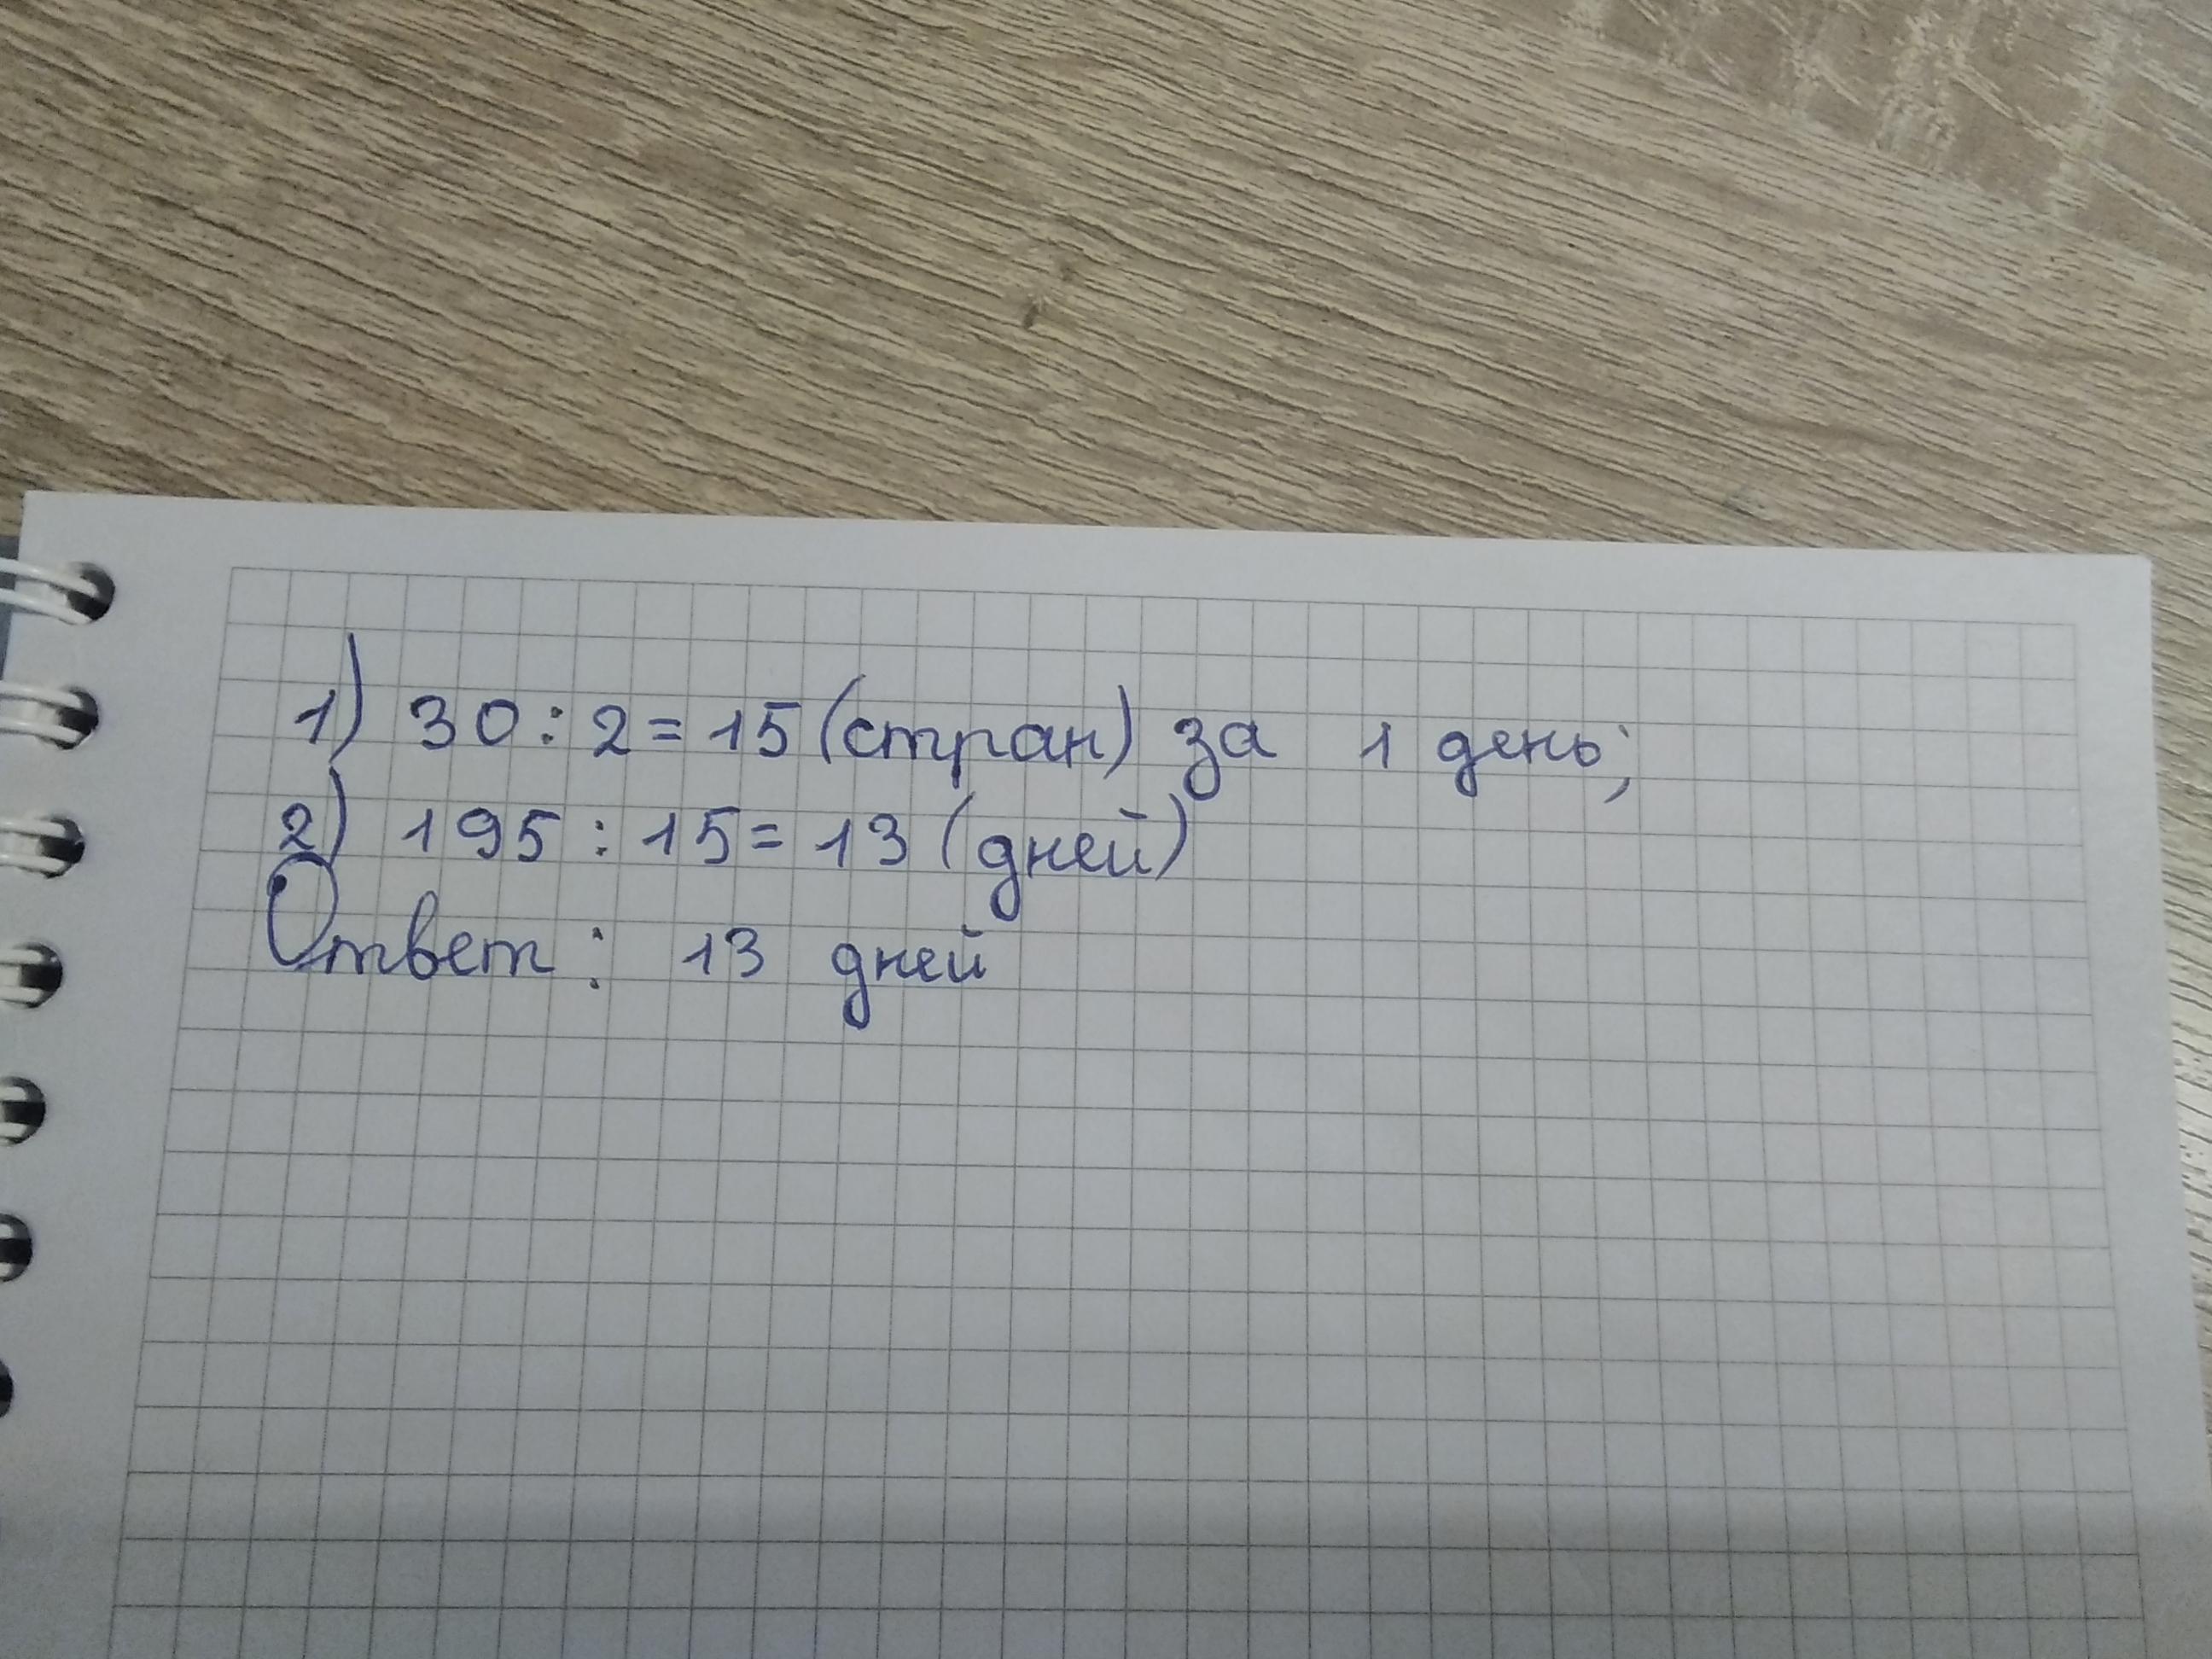 1) 30 : 2 = 15 (стран) за 1 день;
2) 195 : 15 = 13 (дней)
Ответ: 13 дней